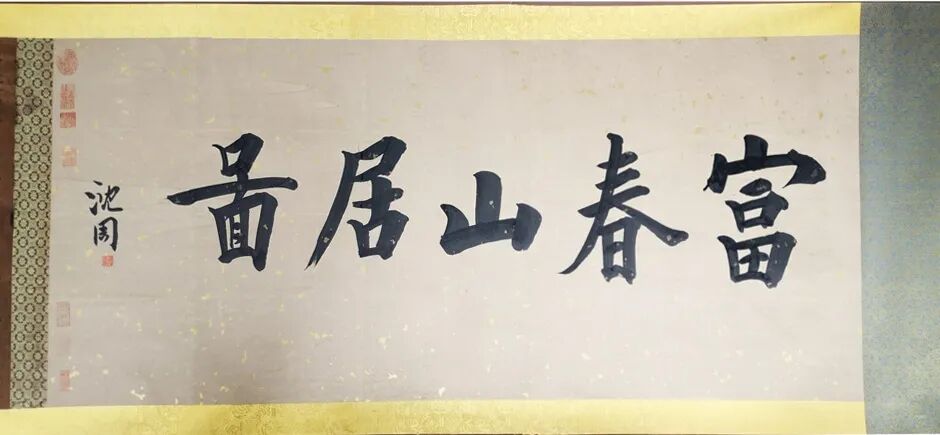 富春山居啚
沈周